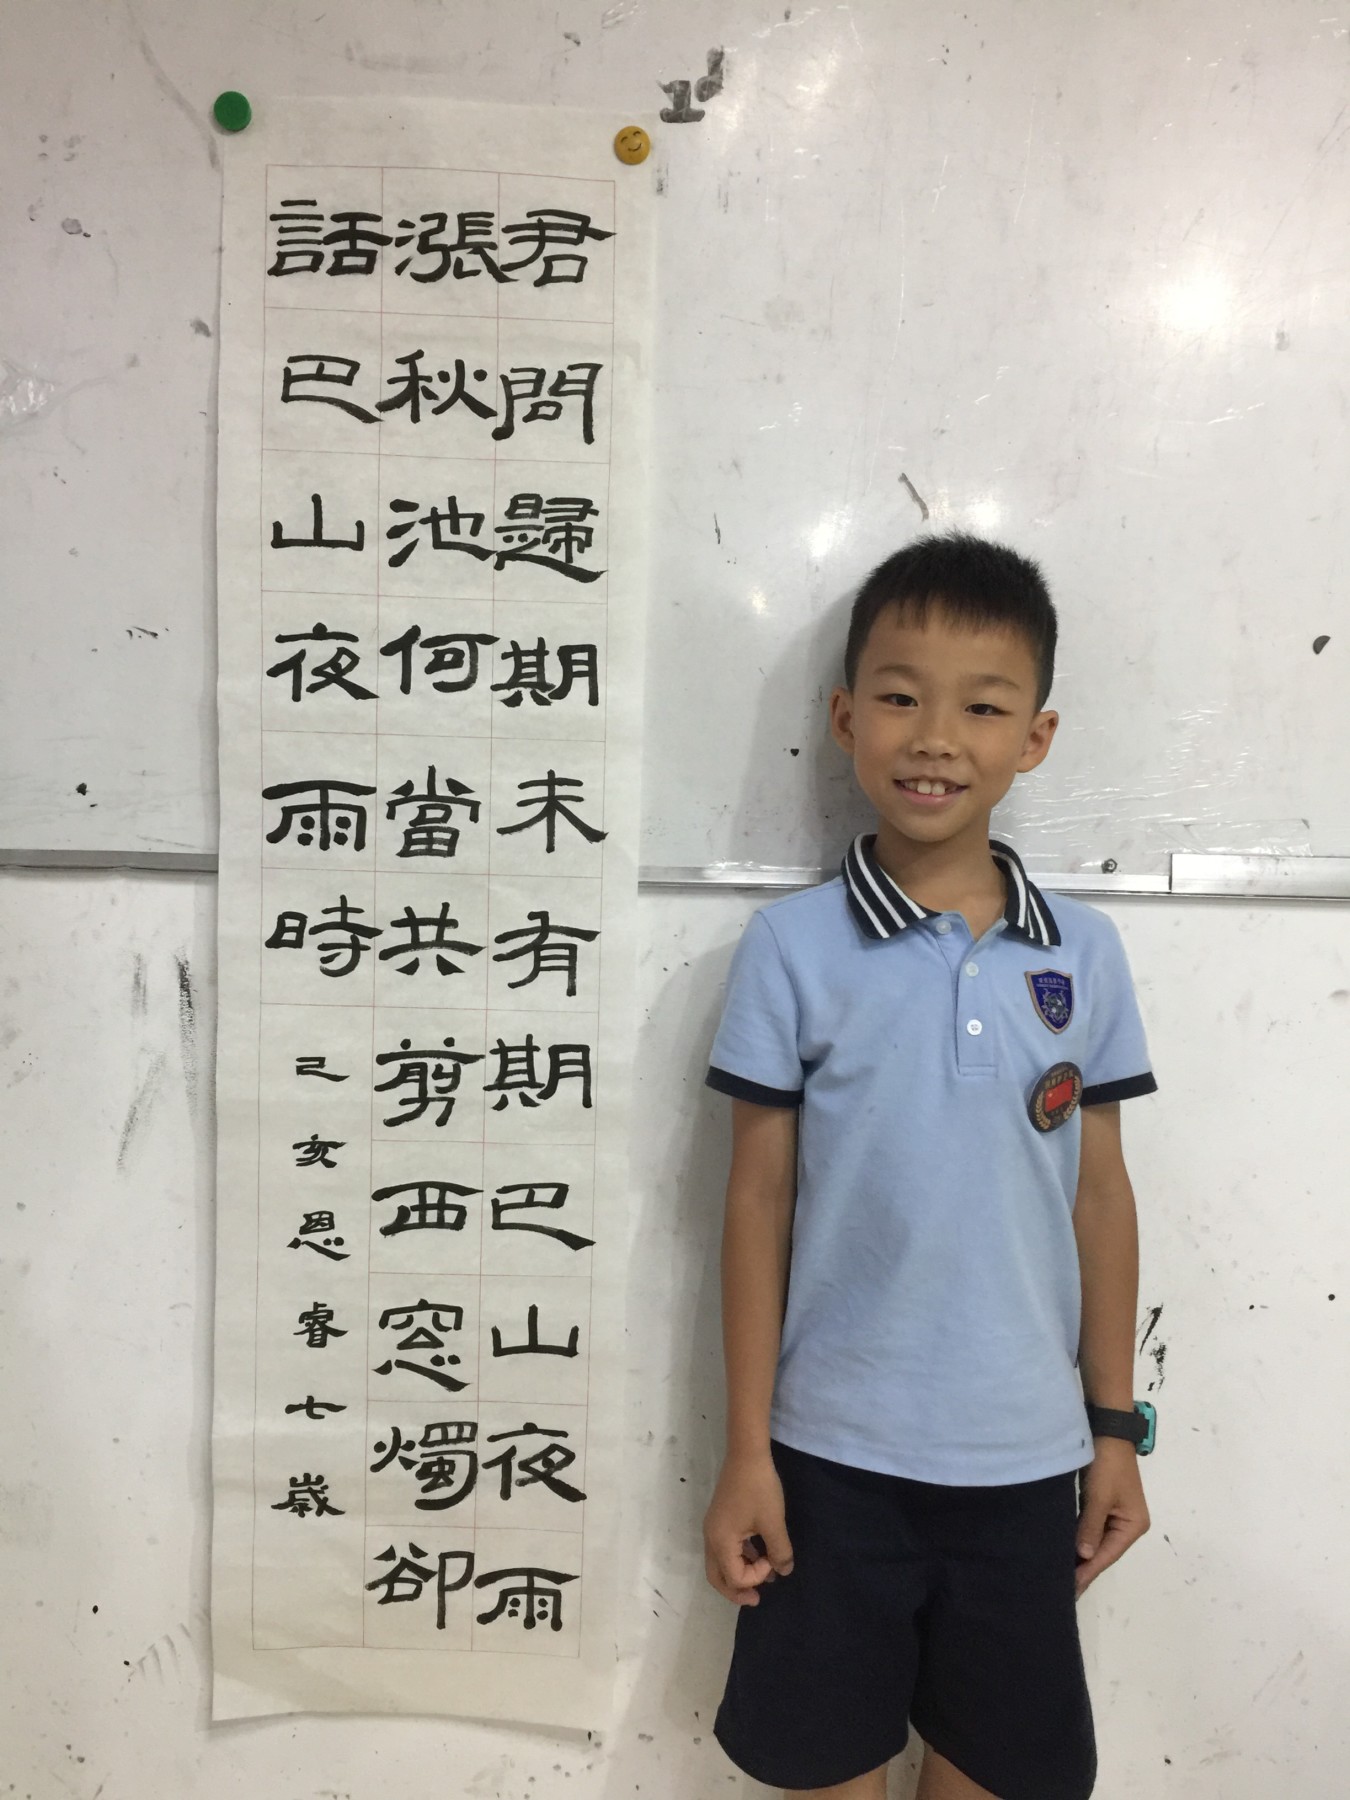 君問歸期未有期巴山夜雨
漲秋池何當共剪西窓燭卻
話巴山夜雨時
己亥恩睿七歲